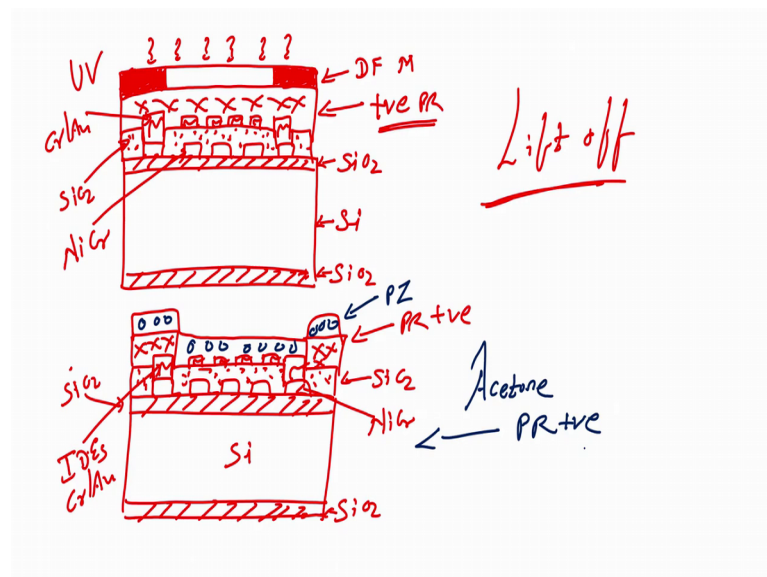 UV
DF M
+ve PR
Cr/Au
SiO2
NiCr
SiO2
Si
SiO2
Lift off
PZ
PR +ve
SiO2
SiO2
NiCr
IDEs
Cr/Au
Si
SiO2
Acetone
PR +ve